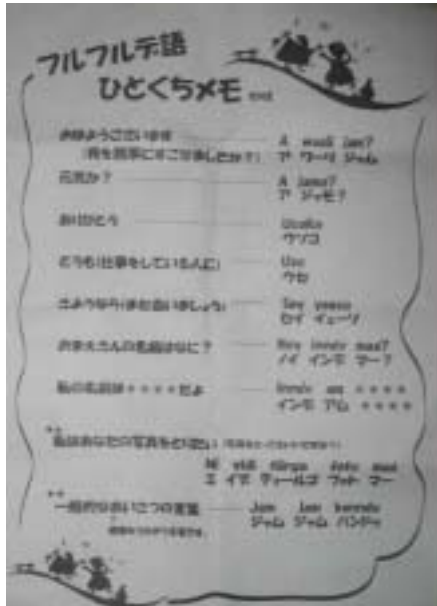 フルフルデ語
ひとくちメモ
おはようございます A waali jam?
(夜を無事にすごせましたか?) ア ワーリ ジャム
元気か? A jamo?
ア ジャモ?
ありがとう Usoko
ウソコ
どうも(仕事をしている人に) Use
ウセ
さようなら(また会いましょう) Sey yeeso
セイ イェーソ
おまえさんの名前はなに? Noy inndv maa?
ノイ インデ マー?
私の名前は****だよ Inndv am ****
インデ アム ****
**
私はあなたの写真をとりたい
foto maa
フォト マー
**
一般的なあいさつの言葉 Jam jam
ジャム ジャム バンドゥ